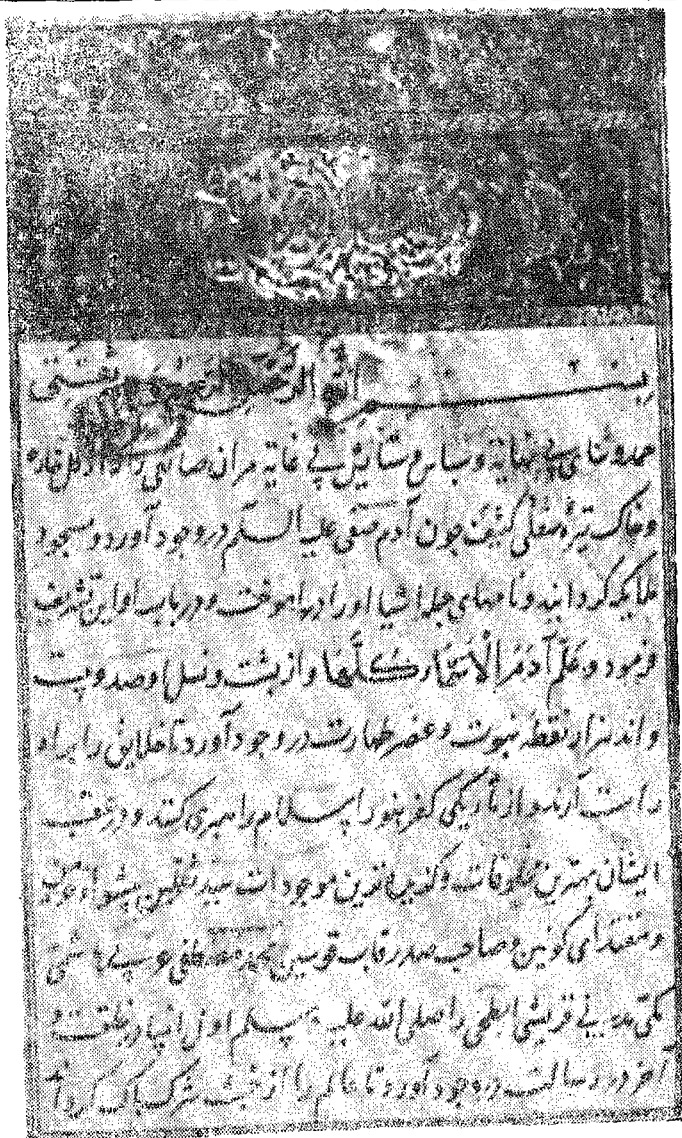 بسم الله الرحمن
حمد و ثنای بی نهایة و سپاس و ستایش بی غایة مر ان صانعی را که از کل
و خاک تیرهٔ سفلی کثیف جون آدم صفی علیه السلم در وجود آورد و مسجود
ملایکه کردانید و نامهای جمله اشیا اورا درآموخت و در باب او این تشریف
فرمود و علم آدم الاسماء کلها و از پشت و نسل او صد و بیست
و اند هزار نقطه نبوت و عنصر طهارت در وجود آورد تا خلایق را براه
راست آرند و از تاریکی کفر بنور اسلام راهبری کنند و در عقب
ایشان بهترین مخلوقات و کزیده‌ترین موجودات سید ثقلین پیشواء
و مقتدای کونین و صاحب صدر قاب قوسین محمد مصطفی عربی هاشمی
مکی مدنی قریشی ابطحی را صلی الله علیه و سلم اول انبیا در خلقت و
آخر در رسالت در وجود آورد تا عالم را از خبث شرک پاک کرد